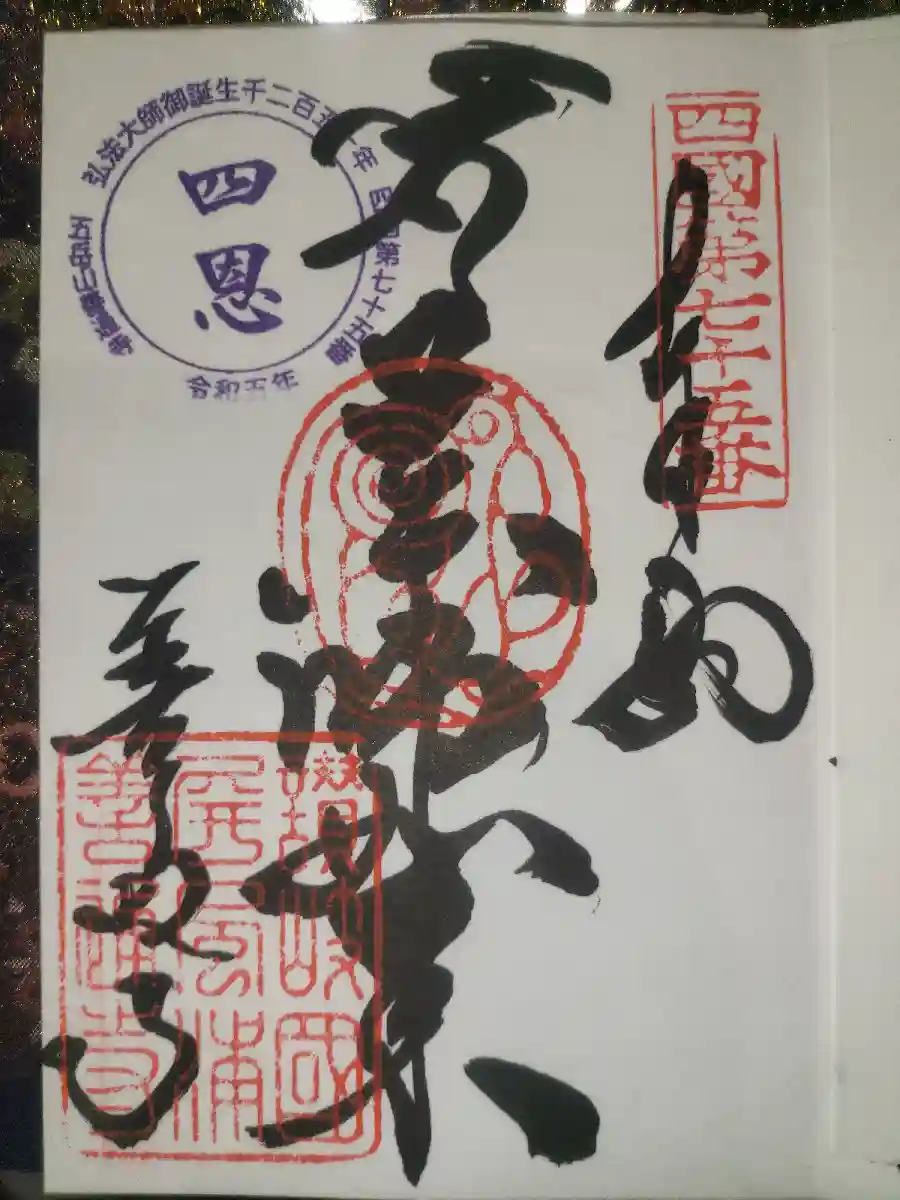 四國第七十五番
奉納
薬師如来
善通寺
讃岐國
屏風浦
善通寺
弘法大師御誕生千二百五十年 四国第七十五番
五岳山善通寺
四恩
令和五年